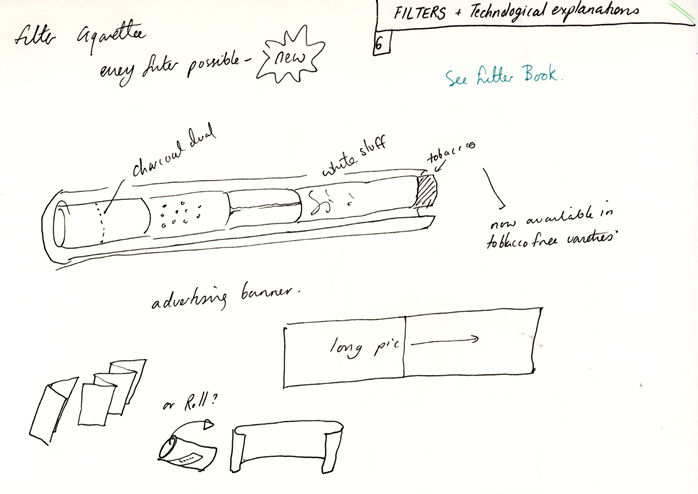 FILTERS + Technological explanations
6
filter cigarettes
every filter possible - new
See Filter Book.
charcoal dual
white stuff
tobacco
now available in
tobacco free varieties
advertising banner.
long pic
or Roll?